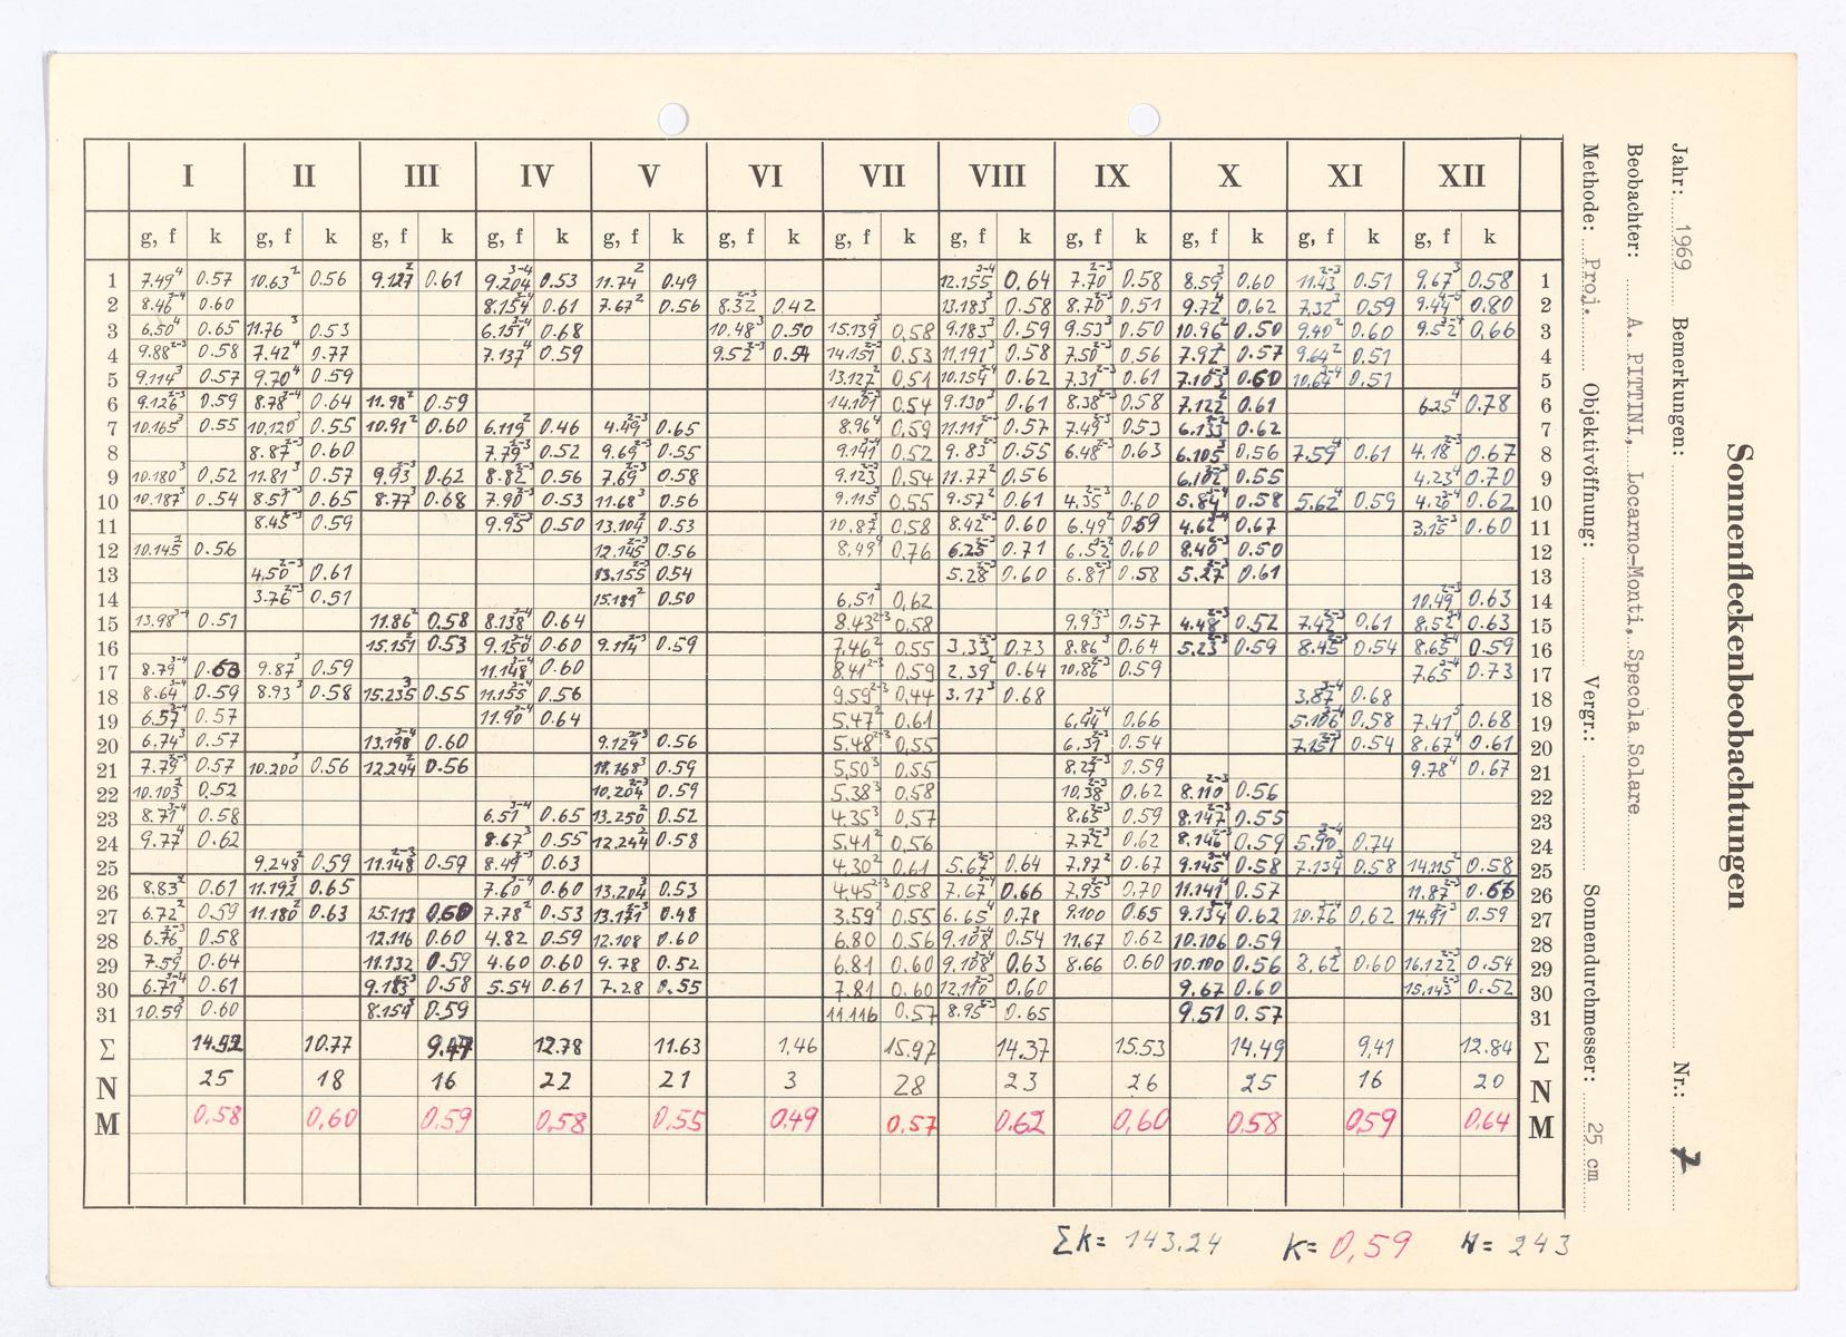 Sonnenfleckenbeobachtungen
Jahr: 1969 Bemerkungen: Nr.: 7
Beobachter: A. PITTINI, Locarno-Monti, Specola Solare
Methode: Proj. Objektivöffnung: Vergr.: Sonnendurchmesser: 25 cm
I II III IV V VI VII VIII IX X XI XII
g, f k g, f k g, f k g, f k g, f k g, f k g, f k g, f k g, f k g, f k g, f k g, f k
1 7.49⁴ 0.57 10.63² 0.56 9.127² 0.61 9.204³⁻⁴ 0.53 11.74² 0.49 12.155³⁻⁴ 0.64 7.70²⁻³ 0.58 8.59³ 0.60 11.43²⁻³ 0.51 9.67³ 0.58 1
2 8.46³⁻⁴ 0.60 8.154³⁻⁴ 0.61 7.67² 0.56 8.32²⁻³ 0.42 13.183³ 0.58 8.70²⁻³ 0.51 9.72⁴ 0.62 7.32³ 0.59 9.44⁴⁻⁵ 0.80 2
3 6.50⁴ 0.65 11.76³ 0.53 6.151³⁻⁴ 0.68 10.48³ 0.50 15.139³ 0.58 9.183³ 0.59 9.53³ 0.50 10.96² 0.50 9.40² 0.60 9.52 0.66 3
4 9.88²⁻³ 0.58 7.42⁴ 0.77 7.137⁴ 0.59 9.52²⁻³ 0.54 14.151 0.53 11.191³ 0.58 7.50²⁻³ 0.56 7.92 0.57 9.64² 0.51 4
5 9.114³ 0.57 9.70⁴ 0.59 13.127² 0.51 10.154⁴ 0.62 7.31 0.61 7.103 0.60 10.64 0.51 5
6 9.126²⁻³ 0.59 8.78³⁻⁴ 0.64 11.98² 0.59 14.101 0.54 9.130³ 0.61 8.38²⁻³ 0.58 7.122² 0.61 6.25⁴ 0.78 6
7 10.165³ 0.55 10.120³ 0.55 10.91² 0.60 6.119² 0.46 4.49²⁻³ 0.65 8.96⁴ 0.59 11.111 0.57 7.49 0.53 6.133 0.62 7
8 8.87²⁻³ 0.60 7.79²⁻³ 0.52 9.69²⁻³ 0.55 9.141³⁻⁴ 0.52 9.83²⁻³ 0.55 6.48²⁻³ 0.63 6.105³ 0.56 7.59⁴ 0.61 4.18²⁻³ 0.67 8
9 10.180³ 0.52 11.81³ 0.57 9.93²⁻³ 0.62 8.82²⁻³ 0.56 7.69² 0.58 9.123 0.54 11.77² 0.56 6.102 0.55 4.23⁴ 0.70 9
10 10.187³ 0.54 8.51²⁻³ 0.65 8.77³ 0.68 7.90²⁻³ 0.53 11.68³ 0.56 9.115³ 0.55 9.57² 0.61 4.35²⁻³ 0.60 5.84 0.58 5.62⁴ 0.59 4.23⁻⁴ 0.62 10
11 8.45²⁻³ 0.59 9.95²⁻³ 0.50 13.104² 0.53 10.87³ 0.58 8.42²⁻³ 0.60 6.49² 0.59 4.62³⁻⁴ 0.67 3.15²⁻³ 0.60 11
12 10.145² 0.56 12.145²⁻³ 0.56 8.49⁴ 0.76 6.25²⁻³ 0.71 6.52² 0.60 8.40²⁻³ 0.50 12
13 4.50²⁻³ 0.61 13.155²⁻³ 0.54 5.28³ 0.60 6.81² 0.58 5.27 0.61 13
14 3.76²⁻³ 0.51 15.189² 0.50 6.51³ 0.62 10.49²⁻³ 0.63 14
15 13.98³⁻⁴ 0.51 11.86² 0.58 8.138³⁻⁴ 0.64 8.43²⁻³ 0.58 9.93²⁻³ 0.57 4.48 0.52 7.42²⁻³ 0.61 8.52 0.63 15
16 15.151² 0.53 9.150³⁻⁴ 0.60 9.114²⁻³ 0.59 7.46² 0.55 3.33²⁻³ 0.73 8.86³ 0.64 5.23 0.59 8.45 0.54 8.65³⁻⁴ 0.59 16
17 8.79³⁻⁴ 0.63 9.87³ 0.59 11.148³⁻⁴ 0.60 8.41²⁻³ 0.59 2.39² 0.64 10.86²⁻³ 0.59 7.65³⁻⁴ 0.73 17
18 8.64³⁻⁴ 0.59 8.93³ 0.58 15.235³ 0.55 11.155³⁻⁴ 0.56 9.59²⁻³ 0.44 3.17³ 0.68 3.87³⁻⁴ 0.68 18
19 6.57³⁻⁴ 0.57 11.90³⁻⁴ 0.64 5.47² 0.61 6.44³⁻⁴ 0.66 5.106³⁻⁴ 0.58 7.41⁵ 0.68 19
20 6.74³ 0.57 13.198³⁻⁴ 0.60 9.129² 0.56 5.48²⁻³ 0.55 6.31³ 0.54 7.151 0.54 8.67⁴ 0.61 20
21 7.79²⁻³ 0.57 10.200³ 0.56 12.244² 0.56 11.168³ 0.59 5.50³ 0.55 8.27³ 0.59 9.78⁴ 0.67 21
22 10.103² 0.52 10.204²⁻³ 0.59 5.38³ 0.58 10.38²⁻³ 0.62 8.110²⁻³ 0.56 22
23 8.71³⁻⁴ 0.58 6.51³⁻⁴ 0.65 13.250² 0.52 4.35³ 0.57 8.65²⁻³ 0.59 8.147²⁻³ 0.55 23
24 9.77⁴ 0.62 8.67³ 0.55 12.244² 0.58 5.41² 0.56 7.72²⁻³ 0.62 8.146 0.59 5.90³⁻⁴ 0.74 24
25 9.248² 0.59 11.148²⁻³ 0.59 8.49³ 0.63 4.30² 0.61 5.67²⁻³ 0.64 7.97² 0.67 9.145³⁻⁴ 0.58 7.134³ 0.58 14.115² 0.58 25
26 8.83² 0.61 11.192³ 0.65 7.60³⁻⁴ 0.60 13.204³ 0.53 4.45²⁻³ 0.58 7.67³⁻⁴ 0.66 7.95²⁻³ 0.70 11.141⁴ 0.57 11.87²⁻³ 0.66 26
27 6.72² 0.59 11.180² 0.63 15.113 0.60 7.78² 0.53 13.171²⁻³ 0.48 3.59² 0.55 6.65⁴ 0.78 9.100 0.65 9.134 0.62 10.76 0.62 14.91³ 0.59 27
28 6.76²⁻³ 0.58 12.116 0.60 4.82 0.59 12.108 0.60 6.80 0.56 9.108³⁻⁴ 0.54 11.67 0.62 10.106 0.59 28
29 7.59³ 0.64 11.132 0.59 4.60 0.60 9.78 0.52 6.81 0.60 9.108 0.63 8.66 0.60 10.100 0.56 8.62³ 0.60 16.122²⁻³ 0.54 29
30 6.71³⁻⁴ 0.61 9.183³ 0.58 5.54 0.61 7.28 0.55 7.81 0.60 12.110²⁻³ 0.60 9.67 0.60 15.143²⁻³ 0.52 30
31 10.59³ 0.60 8.159³ 0.59 11.116 0.57 8.95²⁻³ 0.65 9.51 0.57 31
Σ 14.92 10.77 9.47 12.78 11.63 1.46 15.97 14.37 15.53 14.49 9.41 12.84 Σ
N 25 18 16 22 21 3 28 23 26 25 16 20 N
M 0.58 0.60 0.59 0.58 0.55 0.49 0.57 0.62 0.60 0.58 0.59 0.64 M
Σk= 143.24 K= 0,59 N= 243